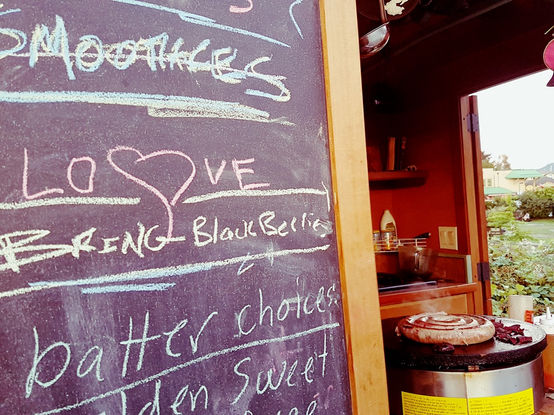 SMOOTHIES
LO VE
BRING BlackBerries
batter choices
lden Sweet